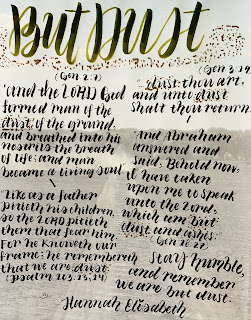 But Dust
(Gen 2:7)
"And the LORD God
formed man of the
dust of the ground,
and breathed into his
nostrils the breath
of life; and man
became a living soul
Like as a father
pitieth his children,
so the LORD pitieth
them that fear him.
For he knoweth our
frame; he remembereth
that we are dust.
(Psalm 103:13,14)
(Gen 3:19
dust thou art,
and unto dust
shalt thou return.
And Abraham
answered and
said, Behold now,
I have taken
upon me to speak
unto the Lord,
which am but
dust and ashes.
(Gen 18:27)
Stay humble,
and remember
we are but dust.
Hannah Elisabeth